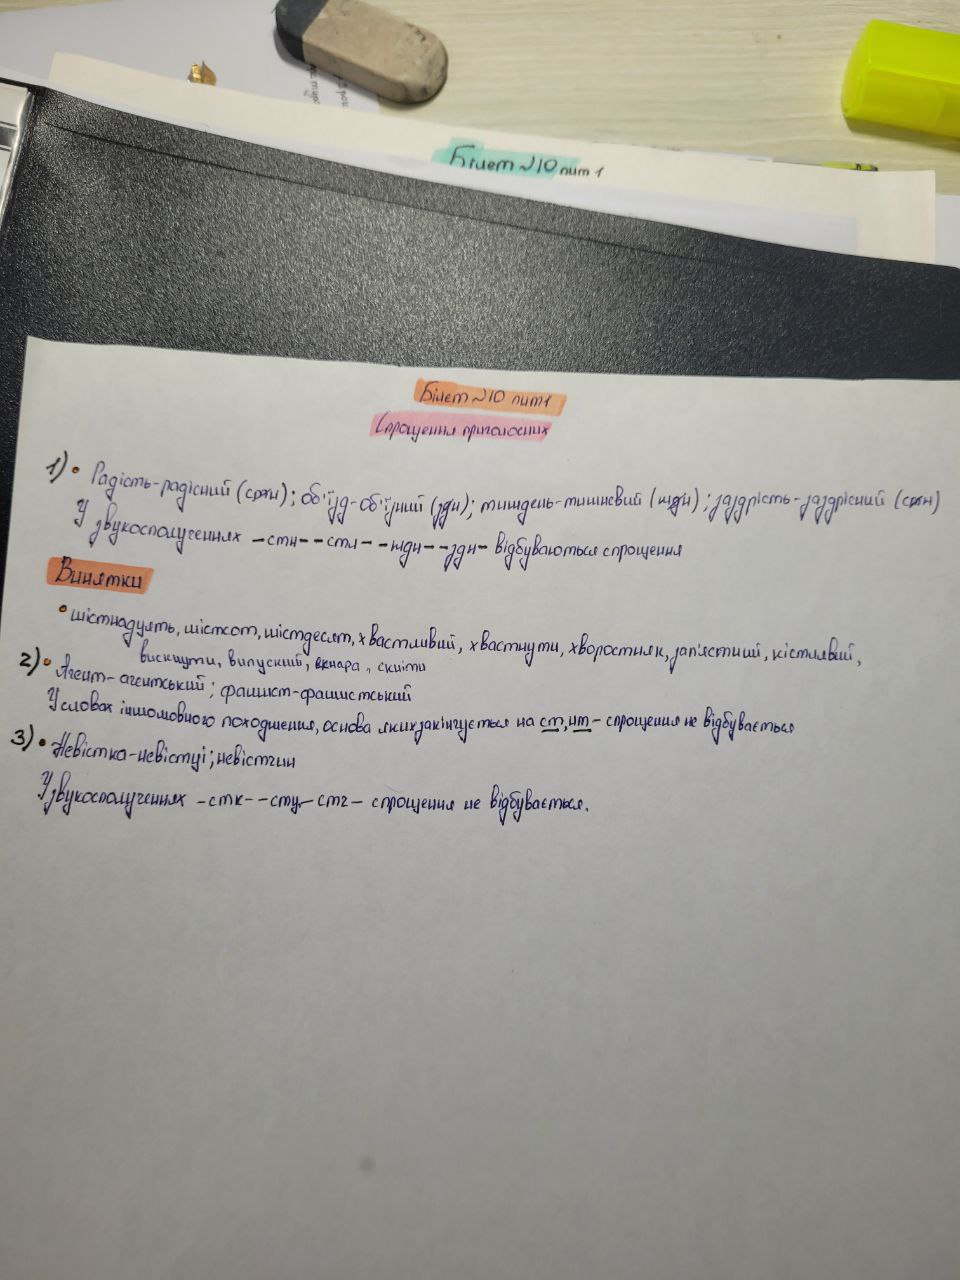 Білет №10 пит 1
Білет №10 пит1
Спрощення приголосних
1) • Радість-радісний (стн); об'їзд-об'їзний (здн); тиждень-тижневий (ждн); заздрість-заздрісний (стн)
У звукосполученнях -стн- -стл- -ждн- -здн- відбуваються спрощення
Винятки
• шістнадцять, шістсот, шістдесят, хвастливий, хвастнути, хворостняк, зап'ястний, кістлявий,
вискнути, випускний, скнара, скніти
2) • Агент-агентський; фашист-фашистський
У словах іншомовного походження, основа яких закінчується на ст, нт - спрощення не відбувається
3) • Невістка-невістці; невістчин
У звукосполученнях -стк- -стц- стч- спрощення не відбувається.